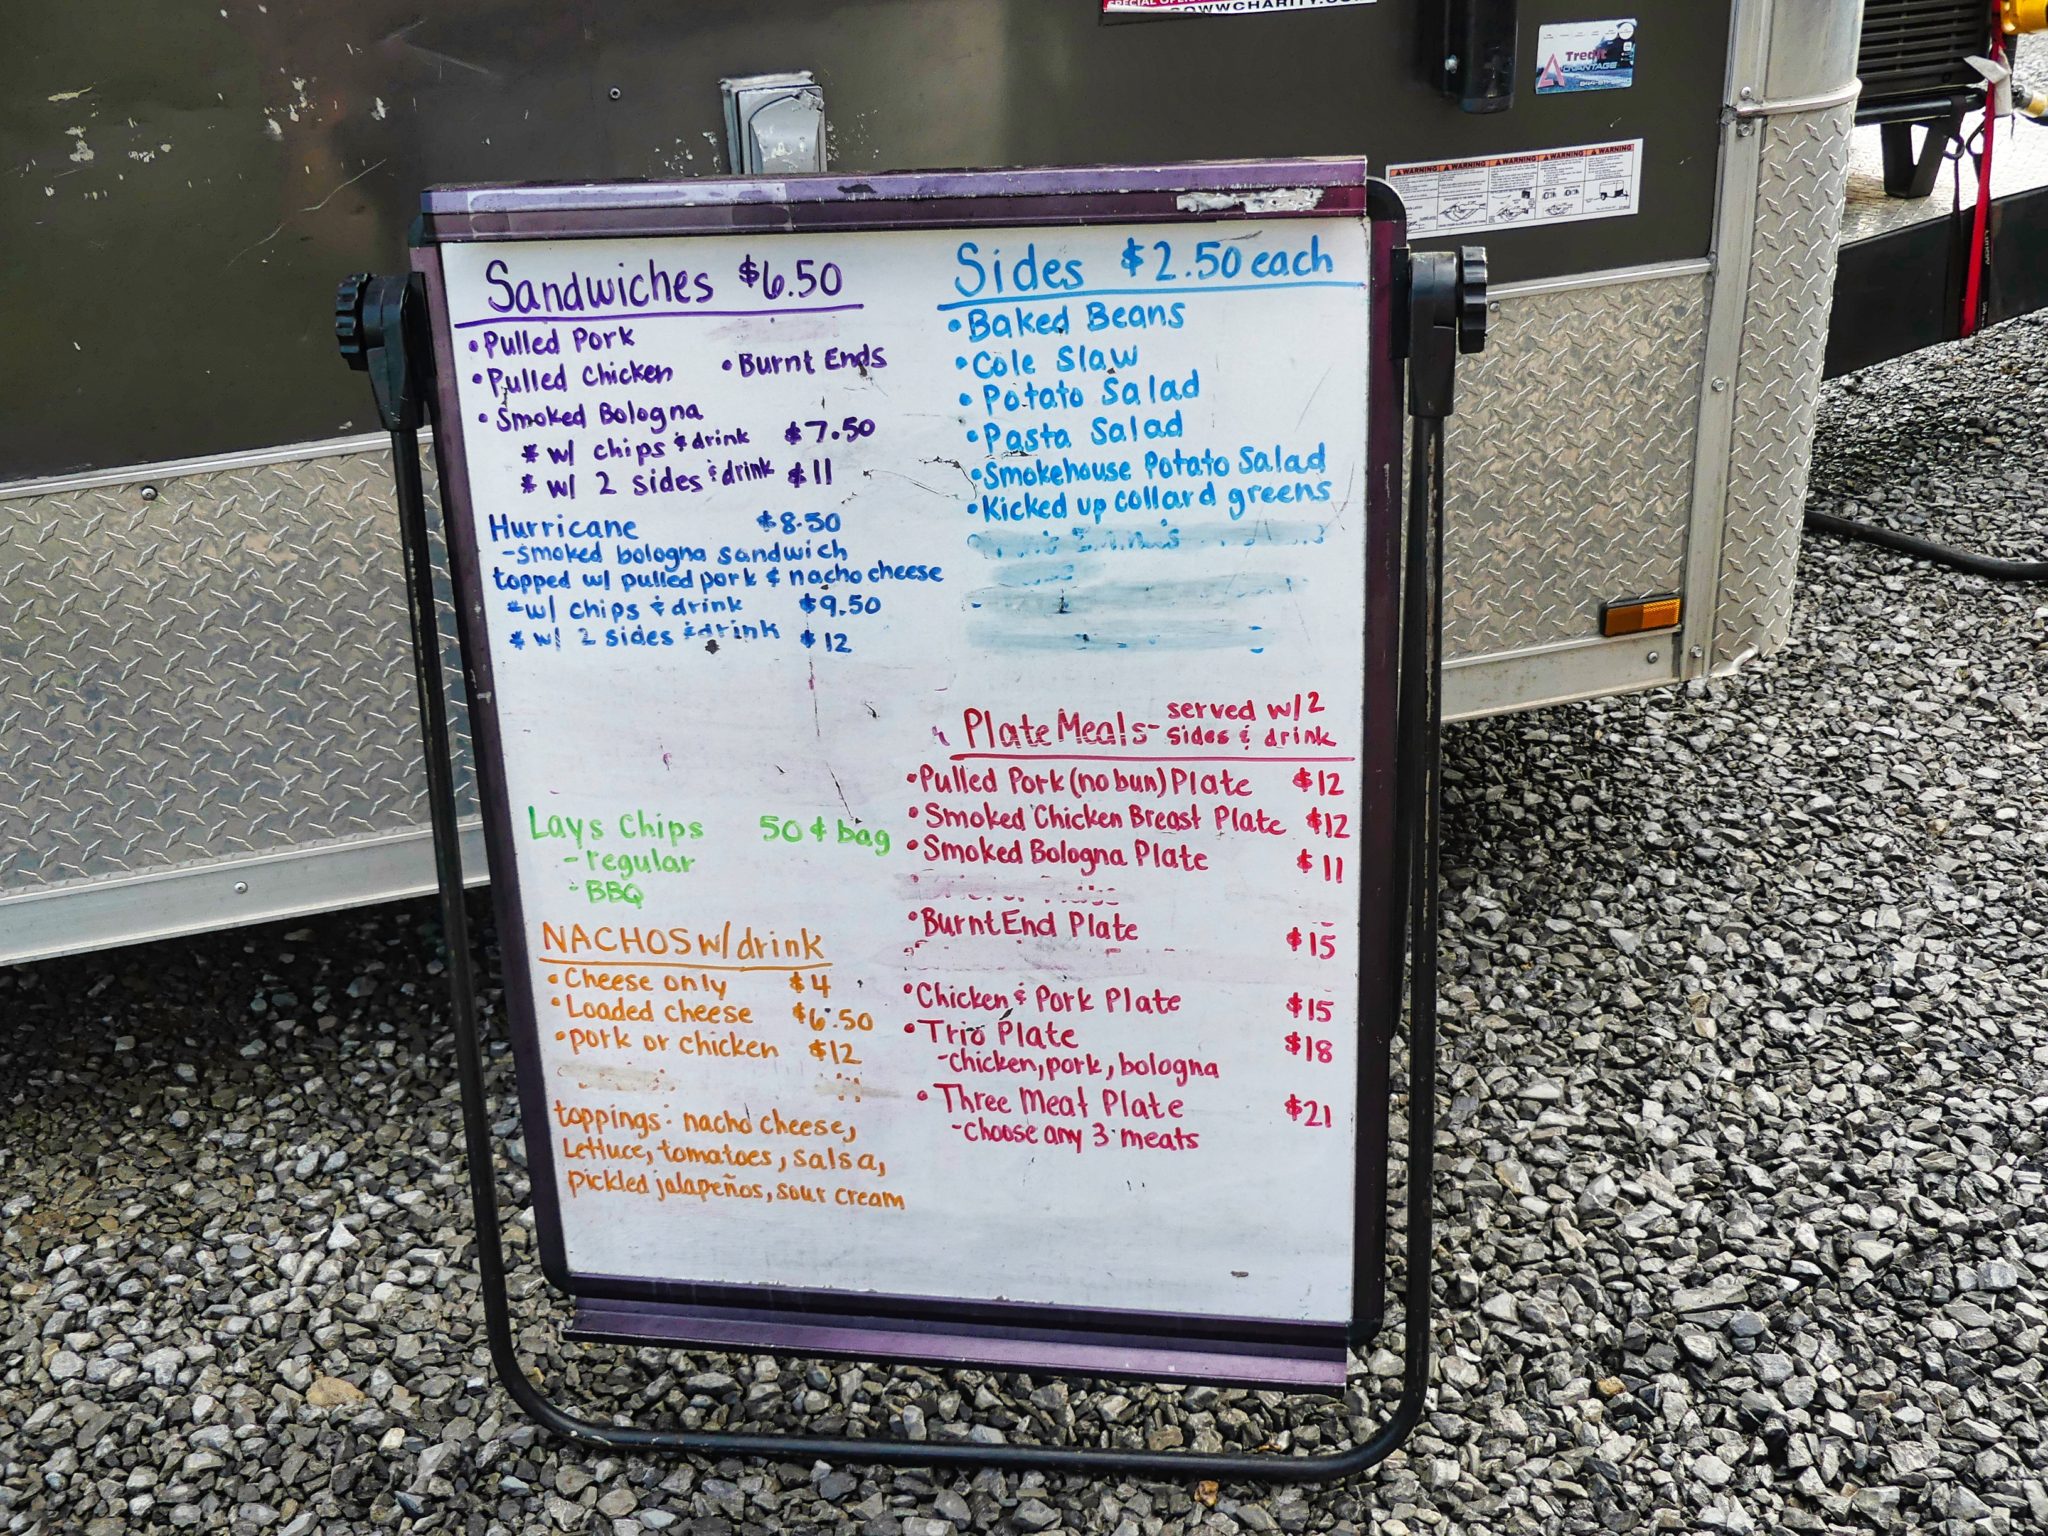 SPECIAL OPER
OWWCHARITY.CO
Tredit
ADVANTAGE
WARNING WARNING WARNING WARNING
Sandwiches $6.50
• Pulled Pork
• Pulled Chicken • Burnt Ends
• Smoked Bologna
* w/ chips & drink $7.50
* w/ 2 sides & drink $11
Hurricane $8.50
- smoked bologna sandwich
topped w/ pulled pork & nacho cheese
* w/ chips & drink $9.50
* w/ 2 sides & drink $12
Lays Chips 50¢ bag
- regular
- BBQ
NACHOS w/ drink
• Cheese only $4
• Loaded cheese $6.50
• pork or chicken $12
toppings: nacho cheese,
Lettuce, tomatoes, salsa,
pickled jalapeños, sour cream
Sides $2.50 each
• Baked Beans
• Cole Slaw
• Potato Salad
• Pasta Salad
• Smokehouse Potato Salad
• Kicked up collard greens
Plate Meals - served w/ 2
sides & drink
• Pulled Pork (no bun) Plate $12
• Smoked Chicken Breast Plate $12
• Smoked Bologna Plate $11
• Burnt End Plate $15
• Chicken & Pork Plate $15
• Trio Plate $18
- chicken, pork, bologna
• Three Meat Plate $21
- choose any 3 meats